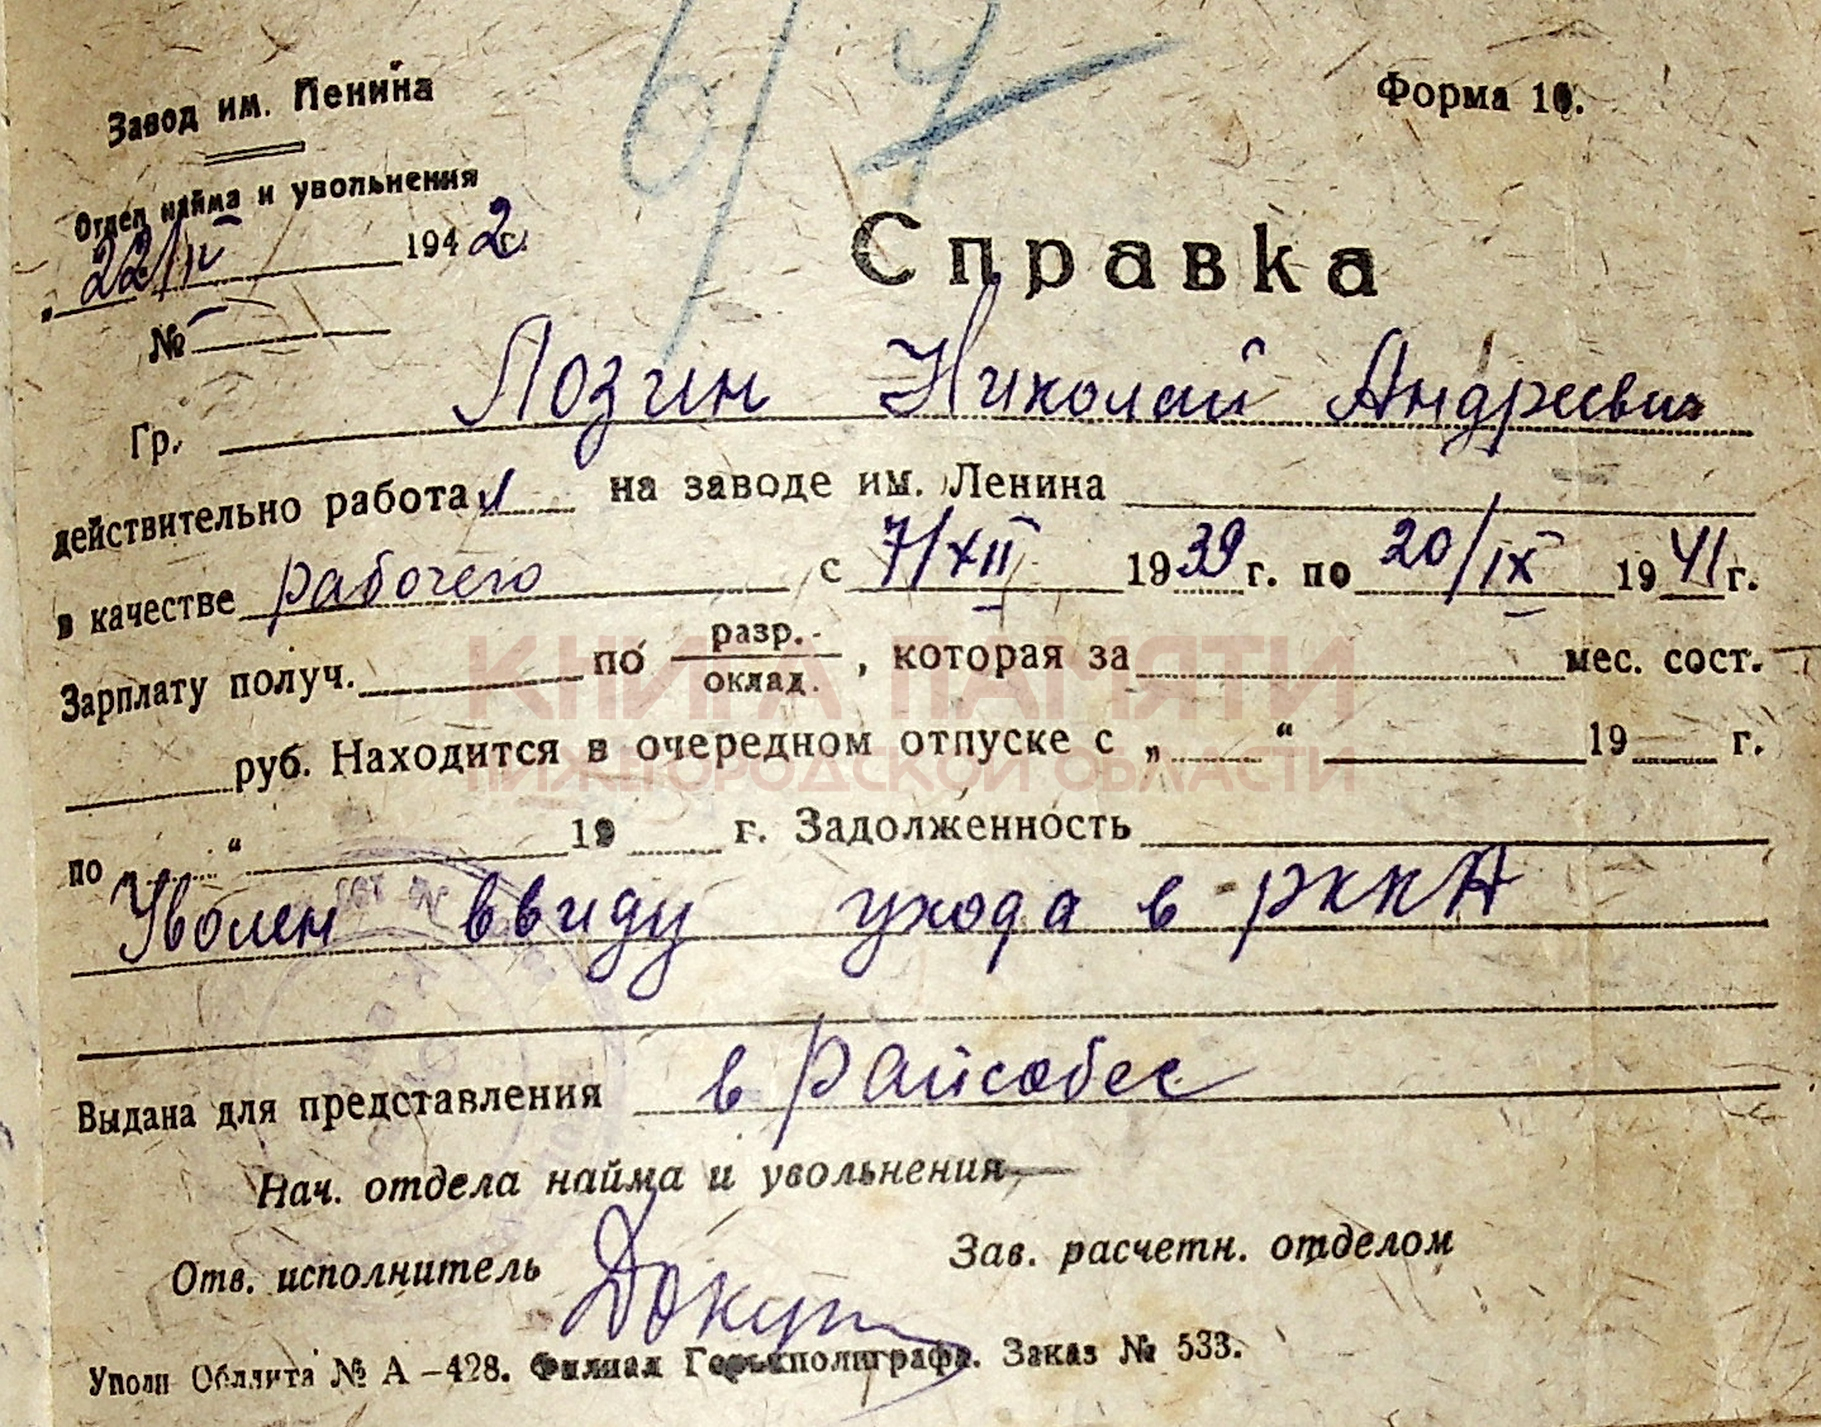 6/4
Завод им. Ленина
Форма 10.
Отдел найма и увольнения
22/IV 1942 г.
Справка
№
Гр. Лозин Николай Андреевич
действительно работал на заводе им. Ленина
в качестве рабочего с 7/XII 1939 г. по 20/IX 1941 г.
Зарплату получ. по разр. / оклад. , которая за мес. сост.
руб. Находится в очередном отпуске с „ “ 19 г.
по „ “ 19 г. Задолженность
Уволен ввиду ухода в РККА
Выдана для представления в Райсобес
Нач. отдела найма и увольнения
Отв. исполнитель
Зав. расчетн. отделом
Уполн Обллита № А-428. Филиал Горькполиграфа. Заказ № 533.
КНИГА ПАМЯТИ
НИЖЕГОРОДСКОЙ ОБЛАСТИ